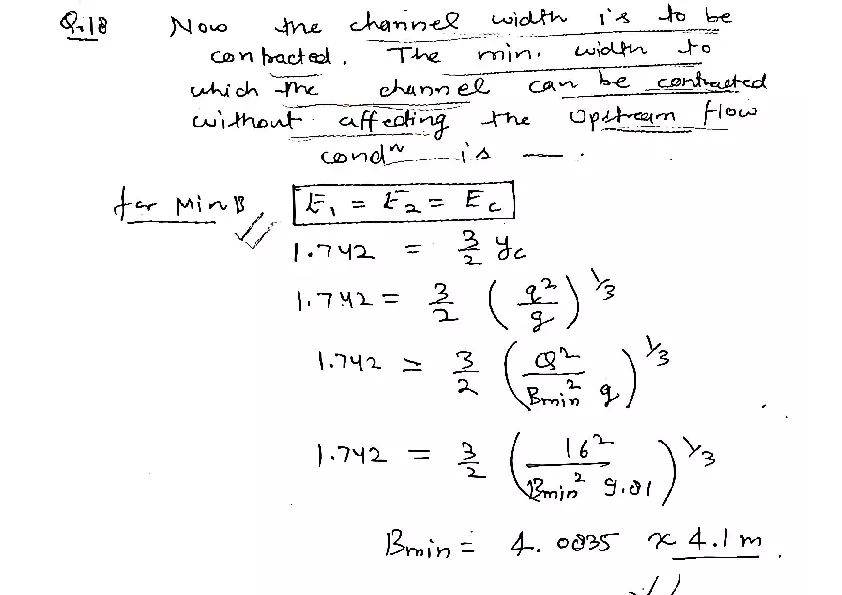 Q.18 Now the channel width is to be
contracted. The min. width to
which the channel can be contracted
without affecting the upstream flow
condⁿ is — .
for Min B E₁ = E₂ = E_c
1.742 = 3/2 y_c
1.742 = 3/2 (q²/g)^1/3
1.742 = 3/2 (Q²/Bmin² g)^1/3
1.742 = 3/2 (16²/Bmin² 9.81)^1/3
Bmin = 4.0835 ≈ 4.1 m.